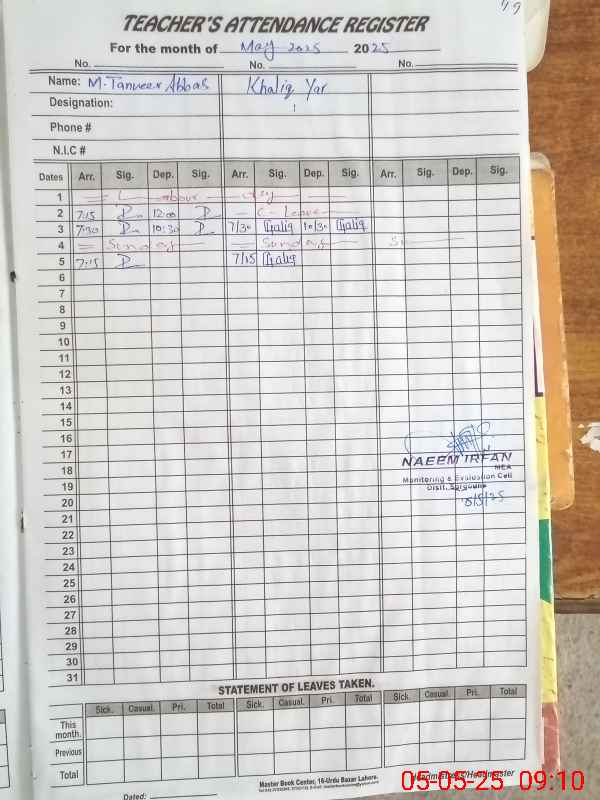 TEACHER'S ATTENDANCE REGISTER
For the month of May 2025 2025
No. No. No.
Name: M. Tanveer Abbas Khaliq Yar
Designation:
Phone #
N.I.C #
Dates Arr. Sig. Dep. Sig. Arr. Sig. Dep. Sig. Arr. Sig. Dep. Sig.
1 Labour day
2 7:15 12:00 C-Leave
3 7:30 10:30 7/30 Khaliq 10/30 Khaliq
4 = Sunday = Sunday Su
5 7:15 7/15 Khaliq
6
7
8
9
10
11
12
13
14
15
16
17
18
19
20
21
22
23
24
25
26
27
28
29
30
31
NAEEM IRFAN
MEA
Monitoring & Evaluation Cell
Distt. Sargodha
5/5/25
STATEMENT OF LEAVES TAKEN.
Sick. Casual. Pri. Total Sick. Casual. Pri. Total Sick. Casual. Pri. Total
This month.
Previous
Total
Dated:
Master Book Center, 16-Urdu Bazar Lahore.
Headmistress/Headmaster
05-05-25 09:10